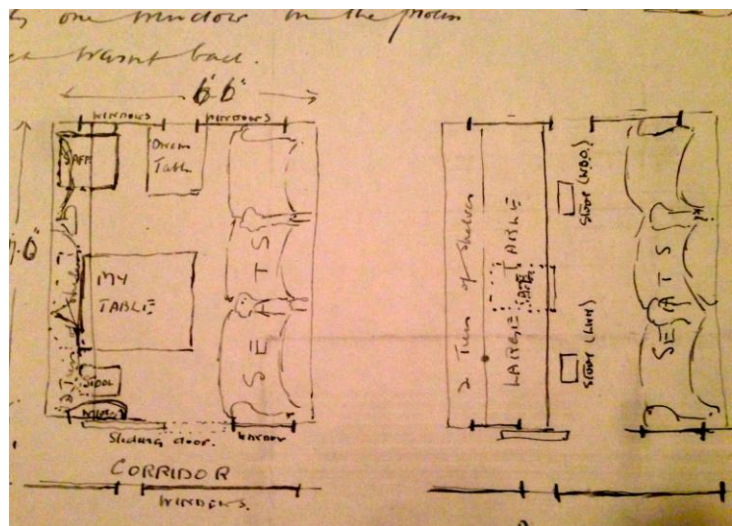 one window in the
wasn't back.
6' 6"
WINDOWS
WINDOWS
SAFE
Table
MY
TABLE
SEATS
STOOL
Sliding door.
WINDOW
CORRIDOR
WINDOWS.
2 Tiers of Shelves
LARGE TABLE
Stool
Stool
SEATS